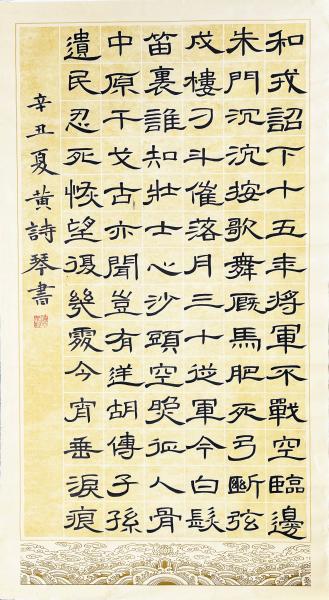 和戎詔下十五年將軍不戰空臨邊
朱門沉沉按歌舞厩馬肥死弓斷弦
戍樓刁斗催落月三十從軍今白髮
笛裏誰知壯士心沙頭空照征人骨
中原干戈古亦聞豈有逆胡傳子孫
遺民忍死恢望復幾霎今宵垂淚痕
辛丑夏黄詩琴書